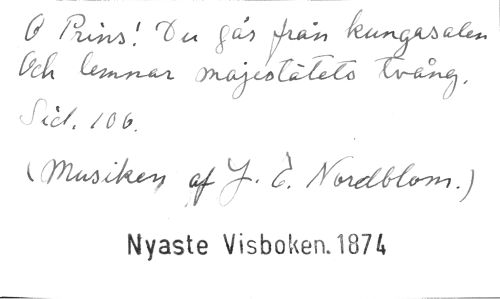 O Prins! Du gås från kungasalen
Och lemnar majestätets tvång.
Sid. 106.
(Musiken af J. E. Nordblom.)
Nyaste Visboken. 1874